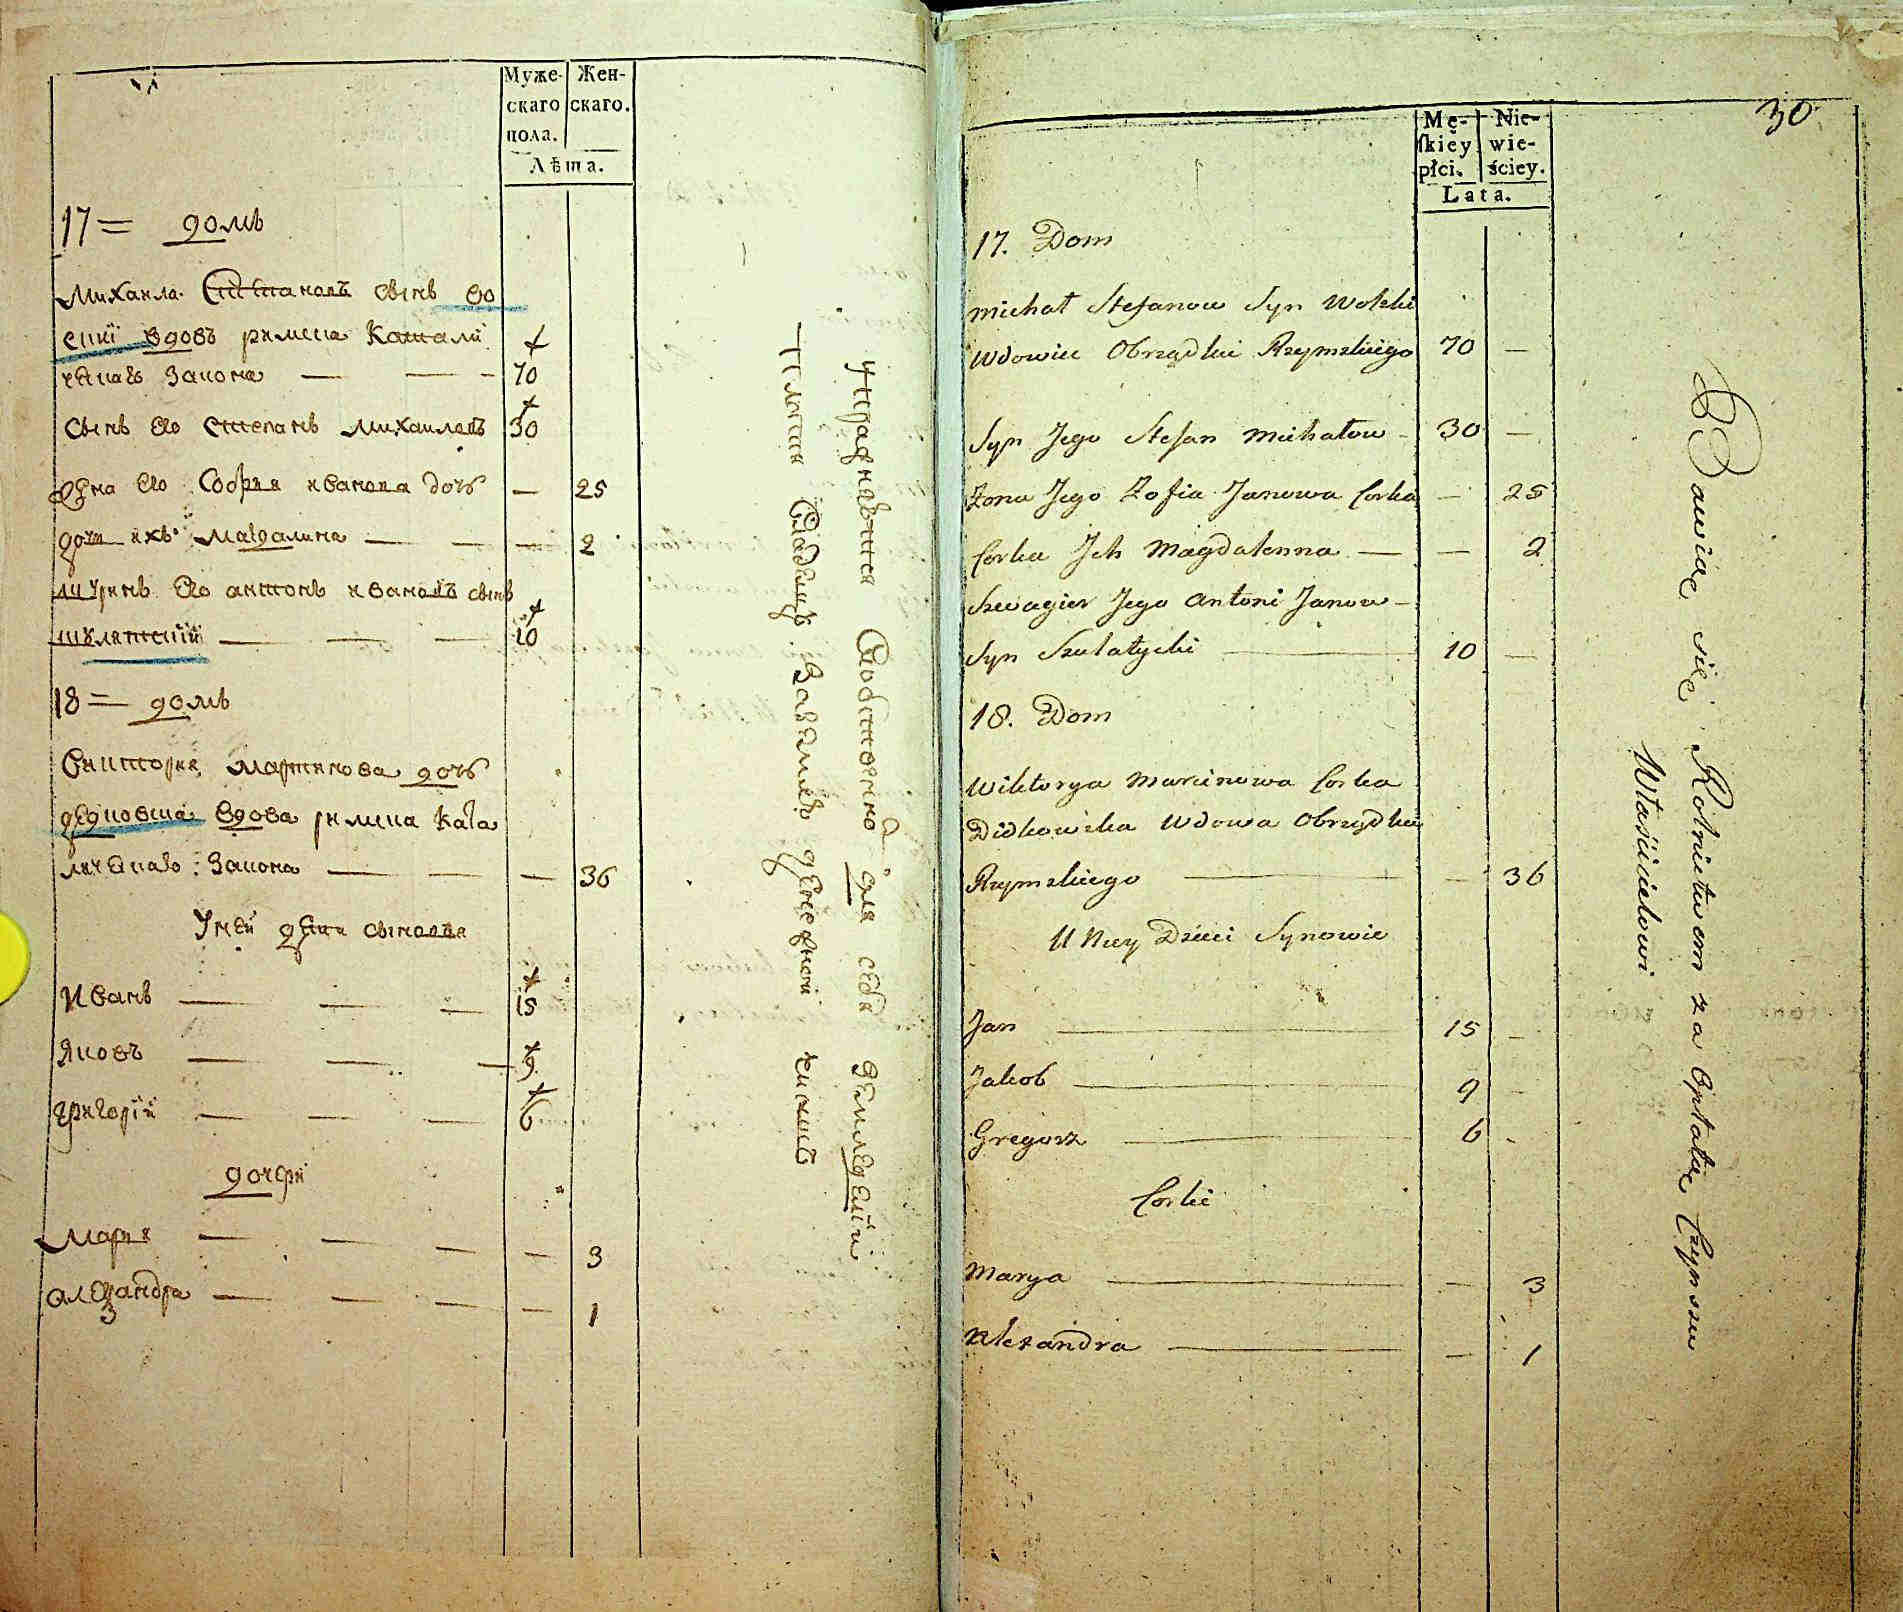 Муже-
скаго
пола.
Жен-
скаго.
Лѣта.
17 = домъ
Михаила Степановъ сынъ во
скій вдовъ римска Катали
ческаго закона — — — 70
Сынъ его Степанъ Михаиловъ 30
жена его София иванова дочь — 25
дочь ихъ Магдалина — — — 2
шуринъ его антонъ ивановъ сынъ
шулятскій — — — 10
18 = домъ
Виктория Мартинова дочь
дедковска вдова римска Ката
лическаго закона — — — 36
У ней дети сыновья
Иванъ — — — 15
Яковъ — — — 9
григорій — — — 6
дочери
Мария — — — — 3
александра — — — — 1
Упражняется Собственно для себя земледѣлій
Платя Владѣльцу Завземлю денежной чиншъ
30
Mę-
skiey
płci.
Nie-
wie-
ściey.
Lata.
17. Dom
Michał Stefanow Syn Wolski
Wdowiec Obrządku Rzymskiego 70 —
Syn Jego Stefan Michałow — 30 —
Żona Jego Zofia Janowa Corka — 25
Corka Ich Magdalenna — — 2
Szwagier Jego Antoni Janow —
Syn Szulatycki — 10 —
18. Dom
Wiktorya Marcinowa Corka
Didkowska Wdowa Obrządku
Rzymskiego — — 36
U Niey Dzieci Synowie
Jan — 15 —
Jakob — 9 —
Gregorz — 6 -
Corki
Marya — — 3
Alexandra — — 1
Bawiąc się Rolnictwem za Opłatą Czynszu
Właścicielowi